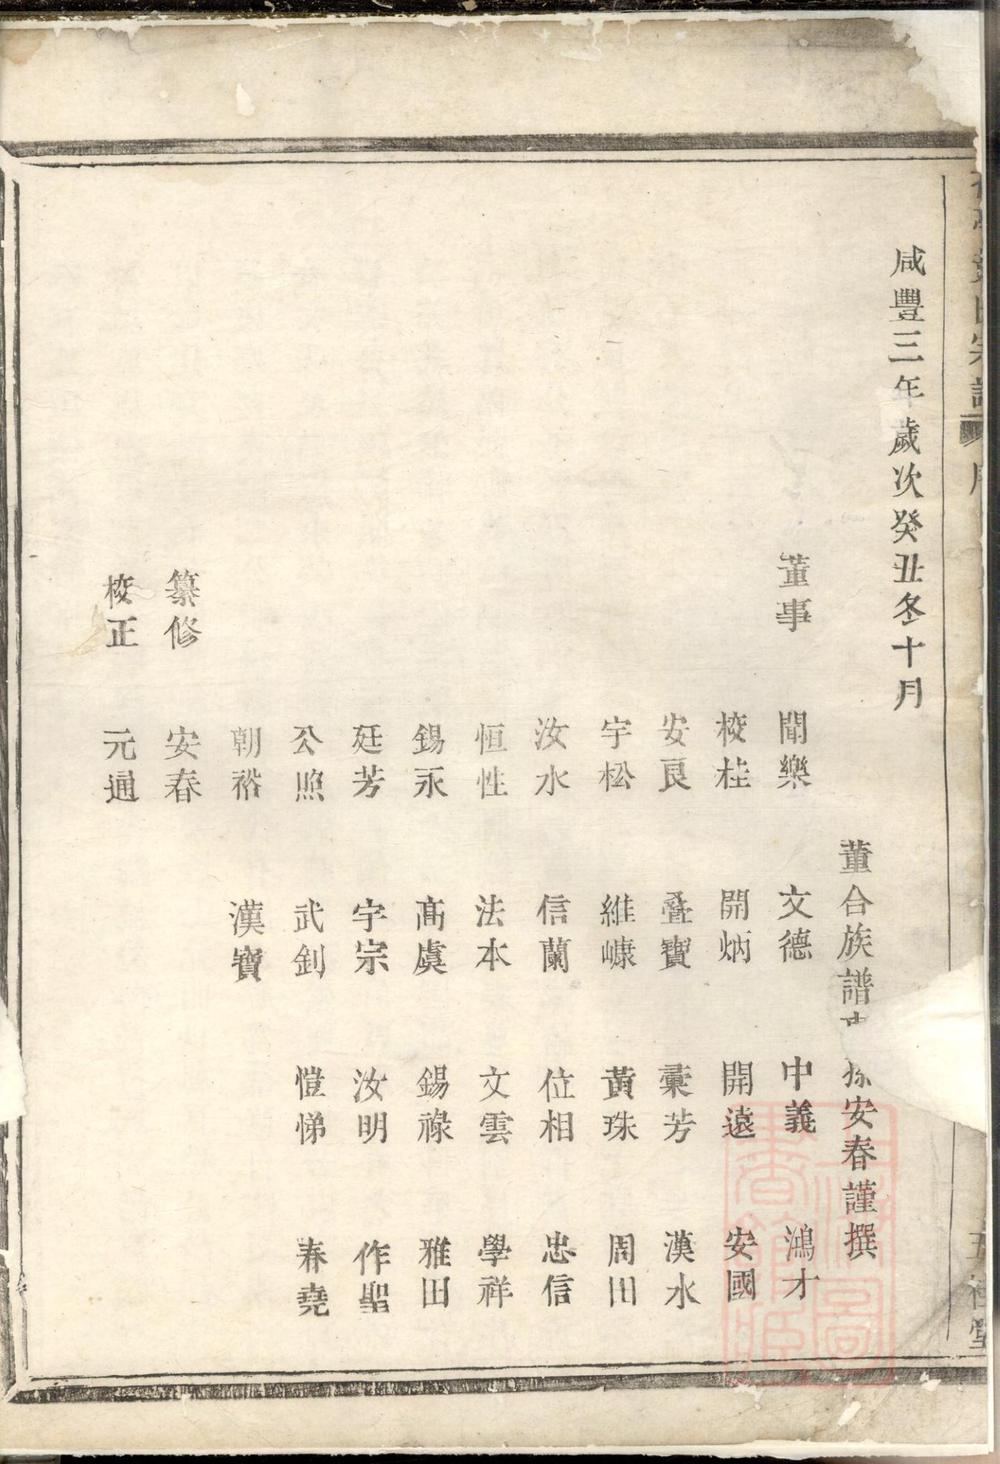 咸豐三年歲次癸丑冬十月
董合族譜 孫安春謹撰
董事 聞樂 文德 中義 鴻才
校桂 開炳 開遠 安國
安良 疊寶 蘽芳 漢水
宇松 維嵊 黃珠 周田
汝水 信蘭 位相 忠信
恒性 法本 文雲 學祥
錫永 高虞 錫祿 雅田
廷芳 宇宗 汝明 作聖
公照 武釗 愷悌 春堯
朝裕 漢寶
纂修 安春
校正 元通